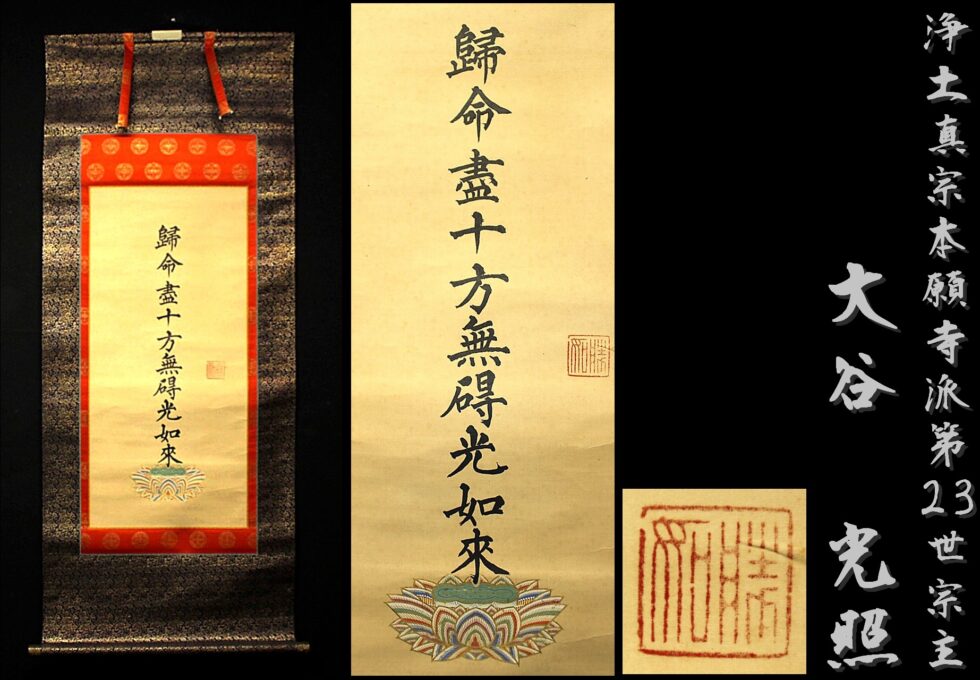 歸命盡十方無碍光如來
歸命盡十方無碍光如來
勝如
勝如
浄土真宗本願寺派第23世宗主
大谷 光照